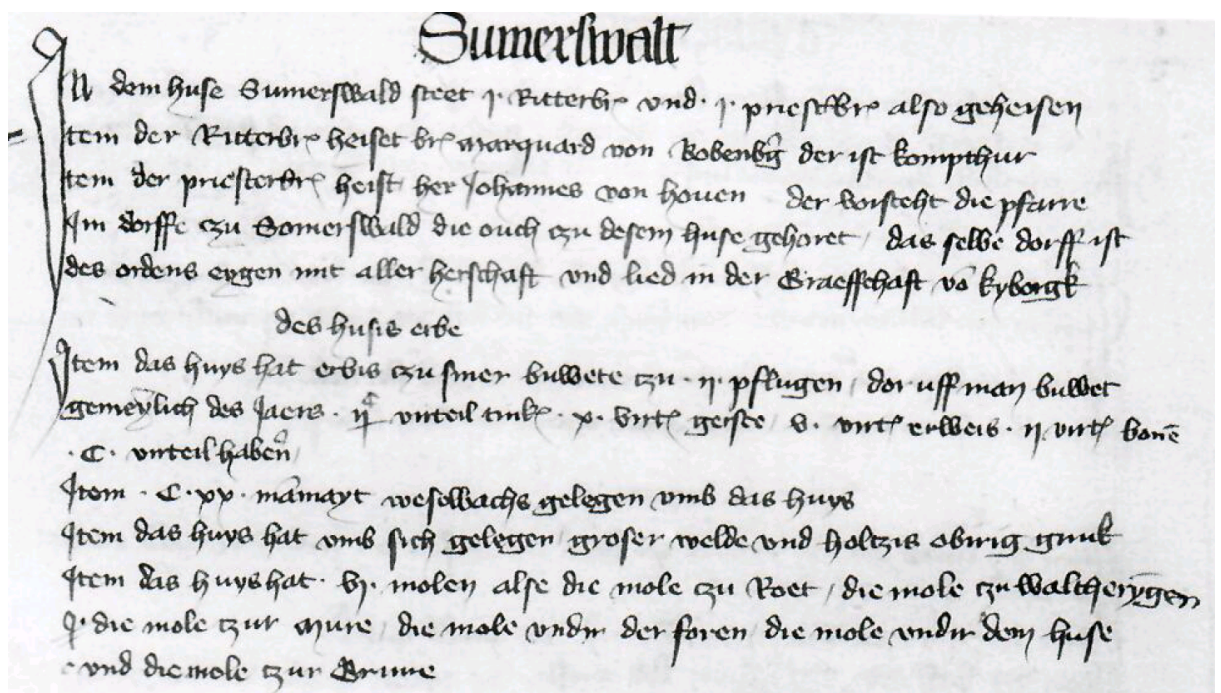 Sumerswalt
In dem huse Sumerswald steet j. Ritterbr und . j. priestbr also geheisen
Item der Ritterbr heiset br marquard von Bobenbg der ist kompthur
Item der priesterbr heist her Johannes von hoven der vorsteht die pfarre
Im dorffe czu Somerswald die ouch czu desem huse gehoret / das selbe dorff ist
des ordens eygen mit aller herschaft und lied in der Graeffschaft vō kyborgk
des husis erbe
Item das huys hat erbis czu siner buwete czu . ij . pflugen / dor uff man buwet
gemeylich des Jaers . virteil . x . virt gerste / v . virt erweis . ij virt bonē
. C . virteil haben
Item . C . xx . māmayt weselbachs gelegen umb das huys
Item das huys hat umb sich gelegen / groser welde und holtzis obirig gnuk
Item das huys hat . vj . molen alse die mole czu Roet / die mole czu waltherygen
die mole czur mure / die mole undir der foren / die mole undir dem huse
und die mole czur Grune